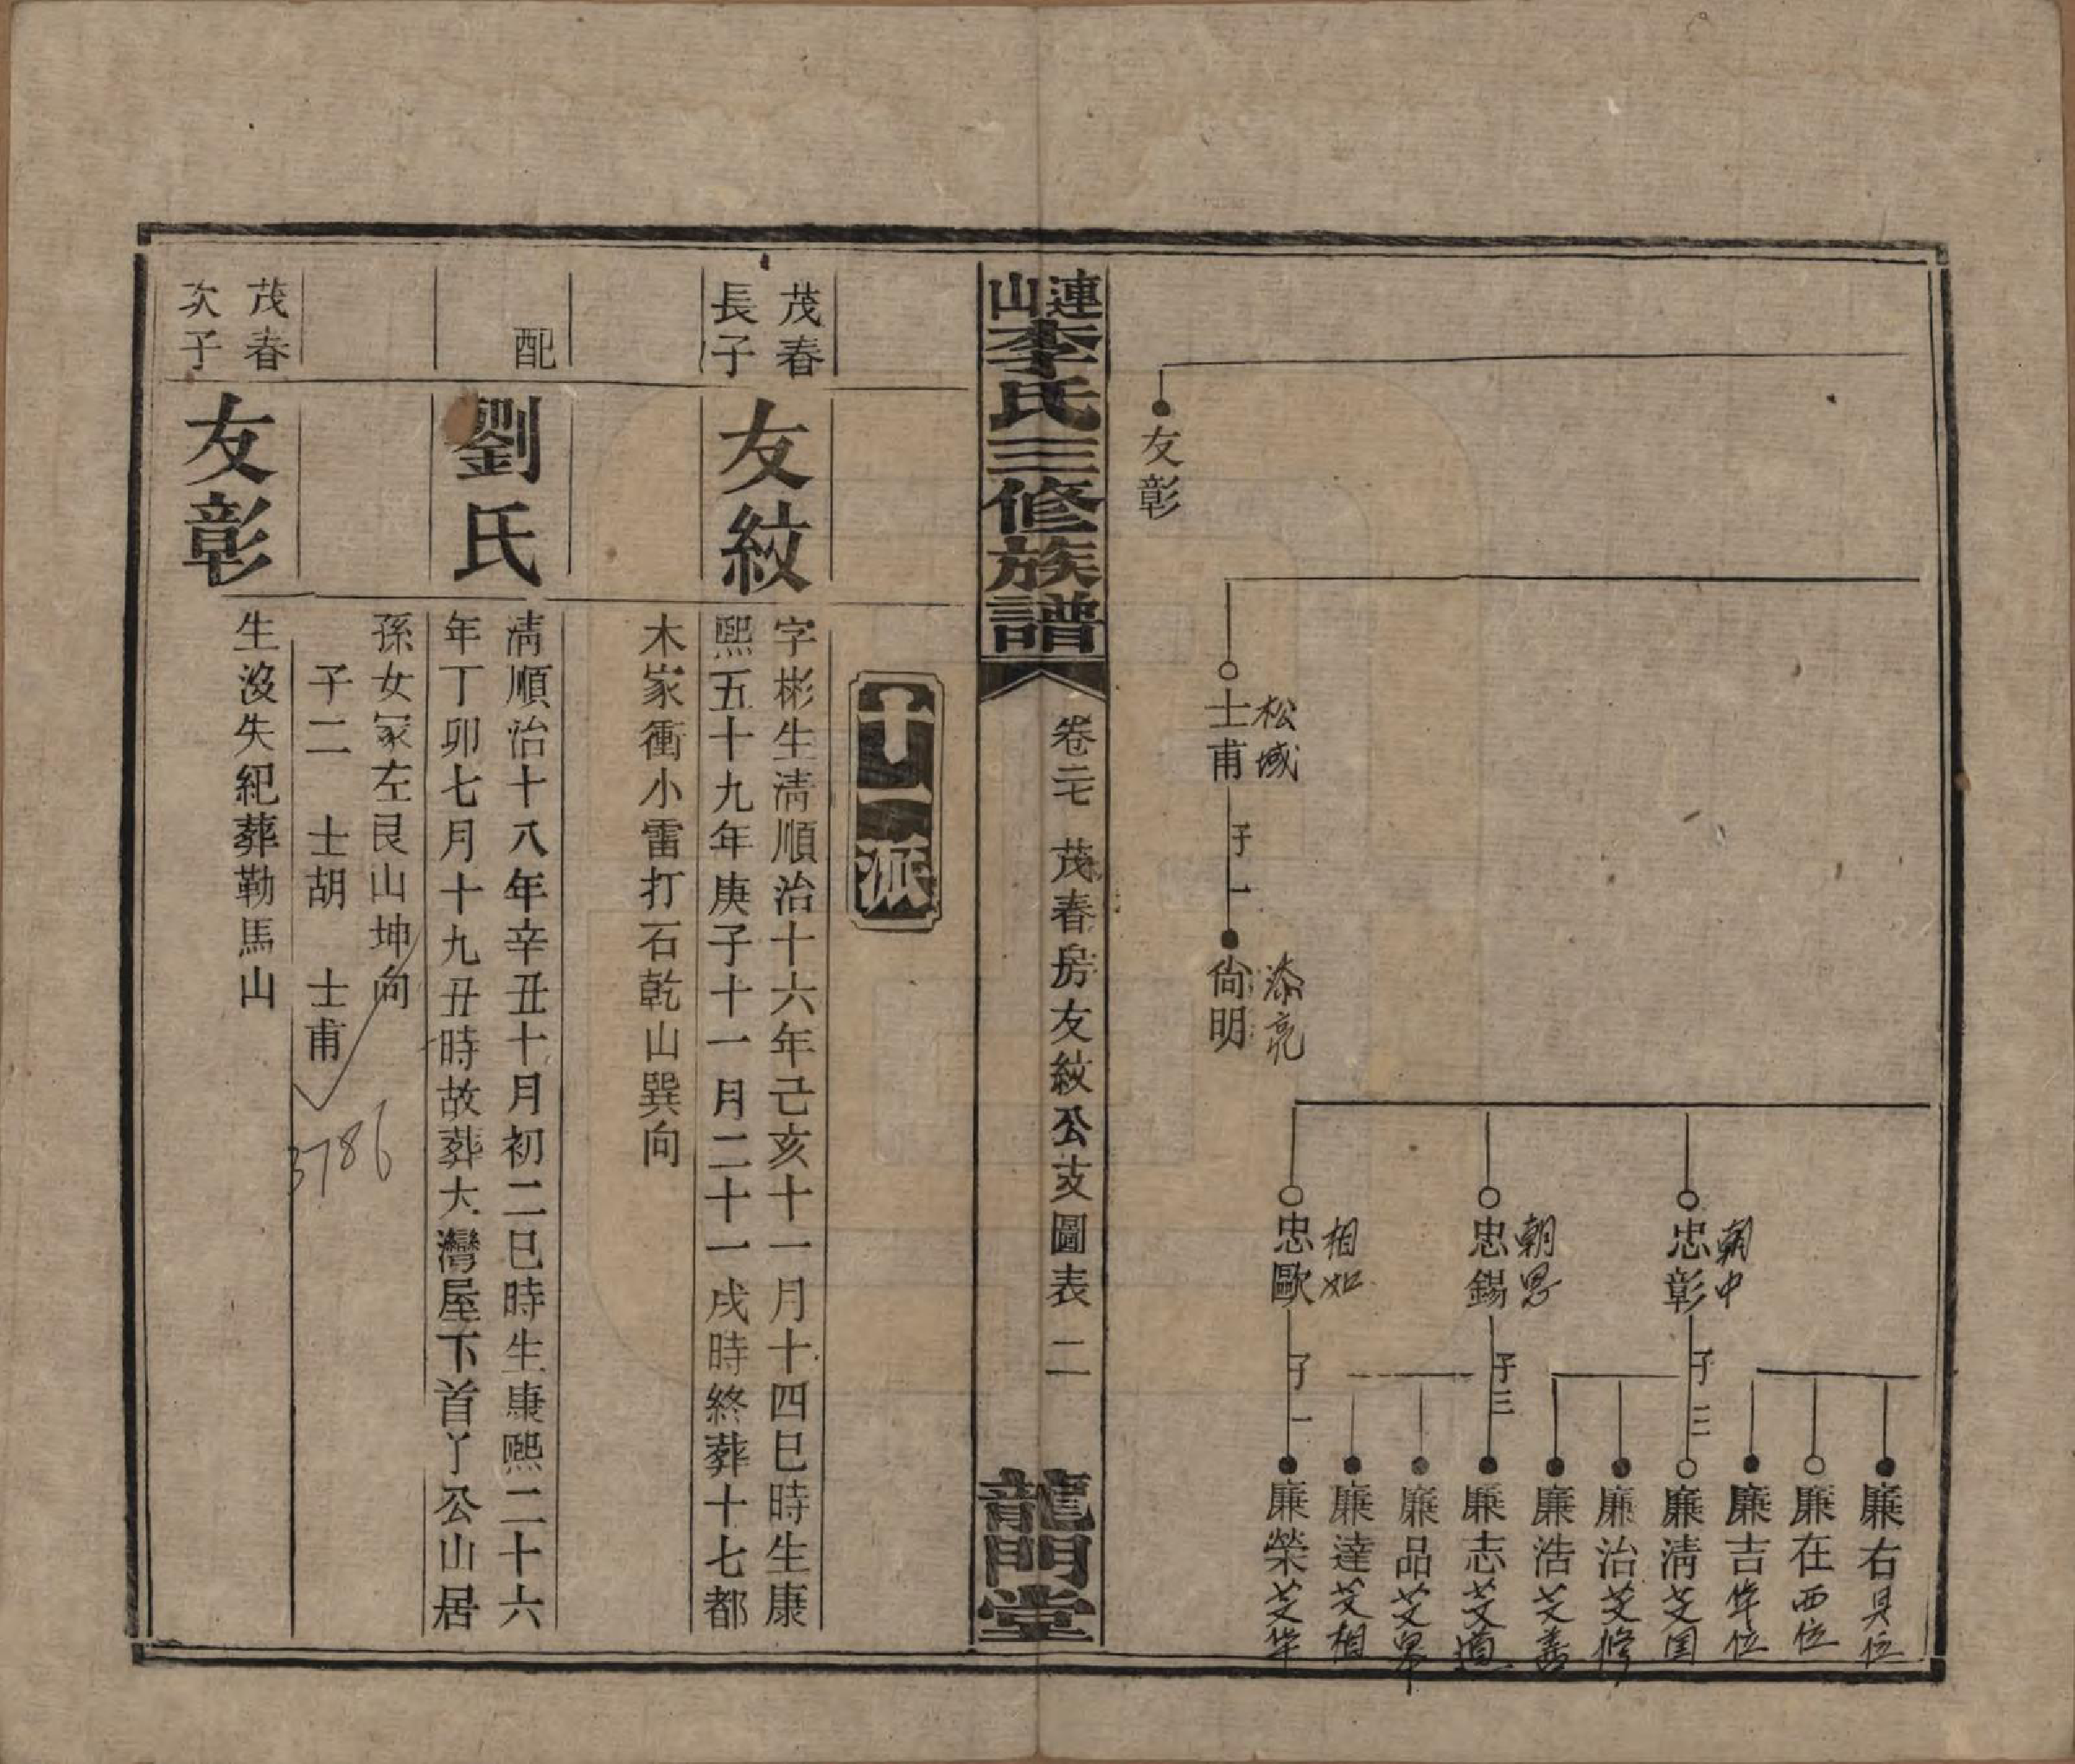 友彰
士甫
松域
子一
尙明
添亮
忠彰
朝中
子三
忠錫
朝恩
子三
忠歐
相如
子一
廉右
廉在西位
廉吉华位
廉淸
廉治芝修
廉浩芝善
廉志芝道
廉品
廉達芝相
廉榮芝华
連山李氏三修族譜
卷二七
茂春房友紋公支圖表
二
龍門堂
十一派
茂春長子
友紋
字彬生淸順治十六年己亥十一月十四巳時生康
熙五十九年庚子十一月二十一戌時終葬十七都
木家衝小雷打石乾山巽向
配
劉氏
淸順治十八年辛丑十月初二巳時生康熙二十六
年丁卯七月十九丑時故葬大灣屋下首丫公山居
孫女冢左艮山坤向
子二 士胡 士甫
3786
茂春次子
友彰
生沒失紀葬勒馬山